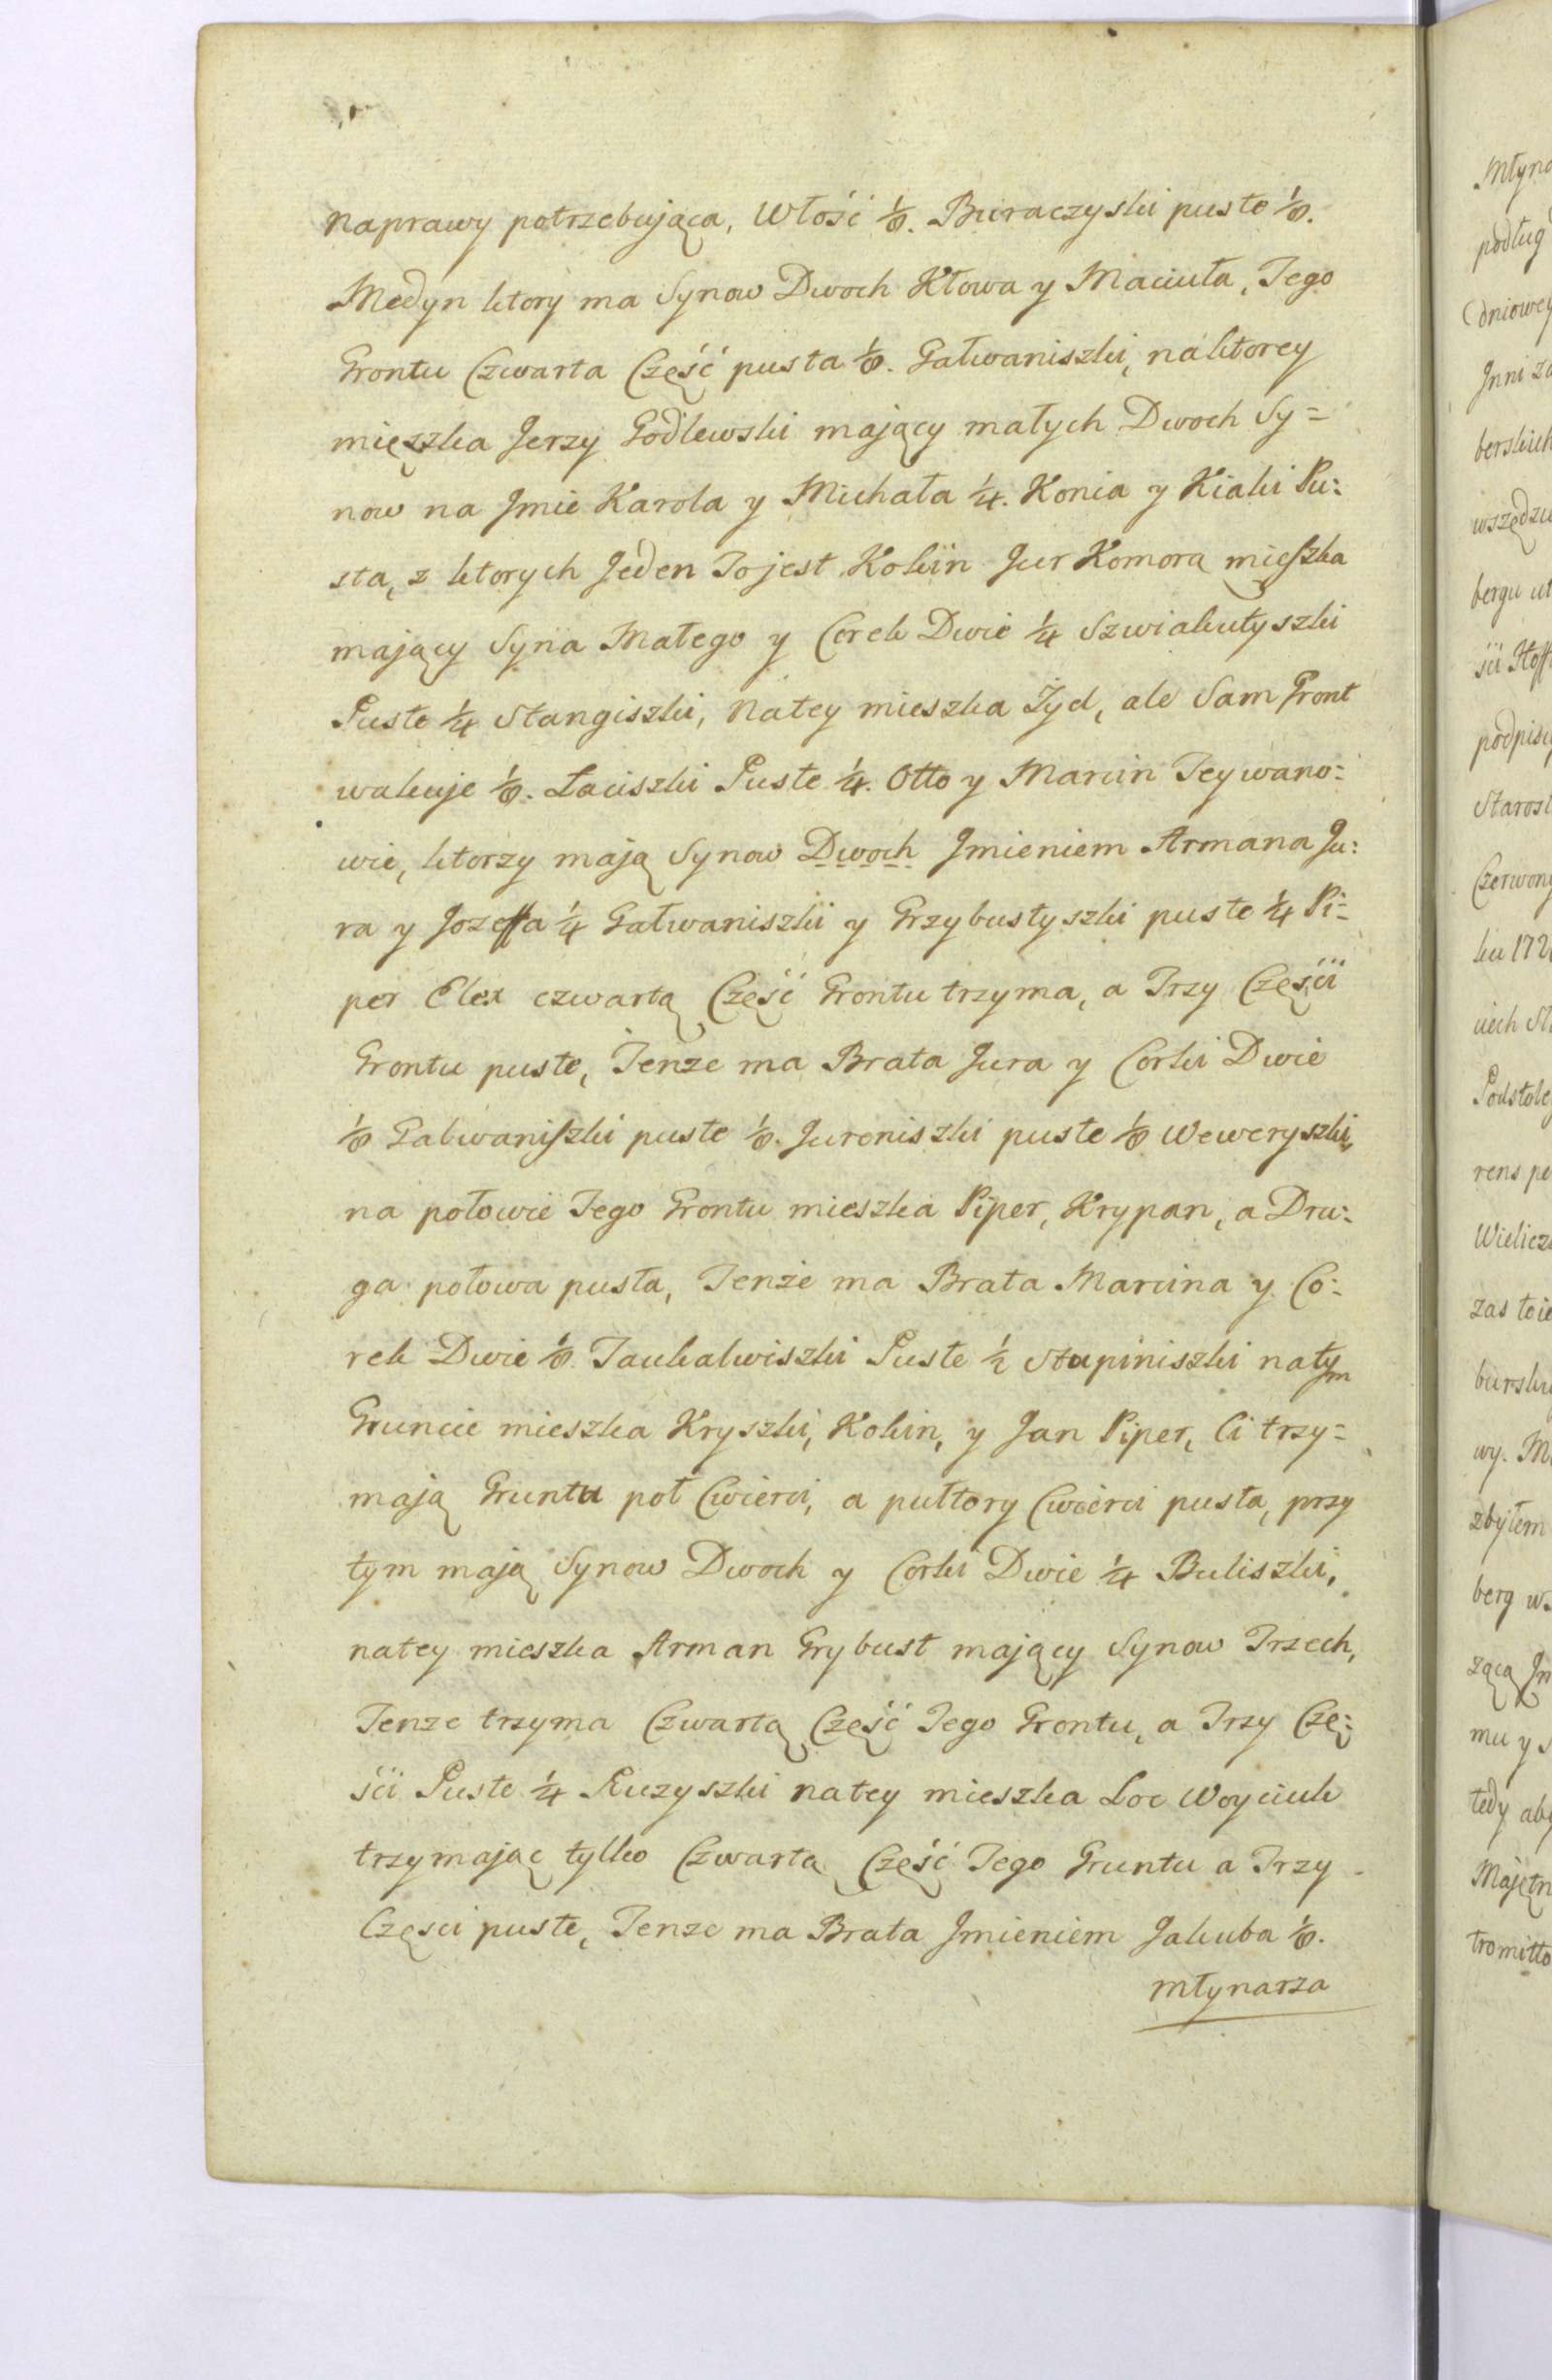 naprawy potrzebująca, Włość 1/8. Buraczyski puste 1/8.
Medyn ktory ma Synow Dwoch Kłowa y Maciuta, Tego
Grontu Czwarta Część pusta 1/8. Gałwaniszki, na ktorey
mięszka Jerzy Godlewski mający małych Dwoch Sy=
now na Jmie Karola y Michała 1/4. Konia y Kiaki Pu:
sta, z ktorych Jeden To jest Kokiin Jur Komorą mięszka
mający Syna Małego y Corek Dwie 1/4 Szwiakutyszki
Puste 1/4 Stangiszki, Natey mieszka Żyd, ale Sam Gront
wakuje 1/8. Łaciszki Puste 1/4. Otto y Marcin Teywano:
wie, ktorzy mają Synow Dwoch Jmieniem Armana Ju:
ra y Jozeffa 1/4 Gałwaniszki y Grzybustyszki puste 1/4 Pi=
per Elex czwartą Część Grontu trzyma, a Trzy Częścii
Grontu puste, Tenze ma Brata Jura y Corki Dwie
1/8 Galwaniszki puste 1/8. Juroniszki puste 1/8 Weweryszki,
na połowie Tego Grontu mieszka Piper, Krypan, a Dru:
ga połowa pusta, Tenże ma Brata Marcina y Co:
rek Dwie 1/8. Taukalwiszki Puste 1/2 Stupiniszki natym
Gruncie mieszka Kryszki, Kokin, y Jan Piper, Ci trzy=
mają Gruntu poł Cwierci, a pułtory Cwierci pusta, przy
tym mają Synow Dwoch y Corki Dwie 1/4 Buliszki,
natey mieszka Arman Grybust mający Synow Trzech,
Tenze trzyma Czwartą Część Tego Grontu, a Trzy Czę:
ści Puste 1/4 Ruzyszki natey mieszka Loc Woyciuk
trzymając tylko Czwartą Część Tego Gruntu a Trzy
Częsci puste, Tenze ma Brata Jmieniem Jakuba 1/8.
młynarza
Młyn
podług
dniowey
Jnni za
berskich
bergu
Starost
Czerwon
ku 172
Podstole
rens
Wielicz
wy. M.
zbytem
berg w.
mu y
tedy aby
Majętn